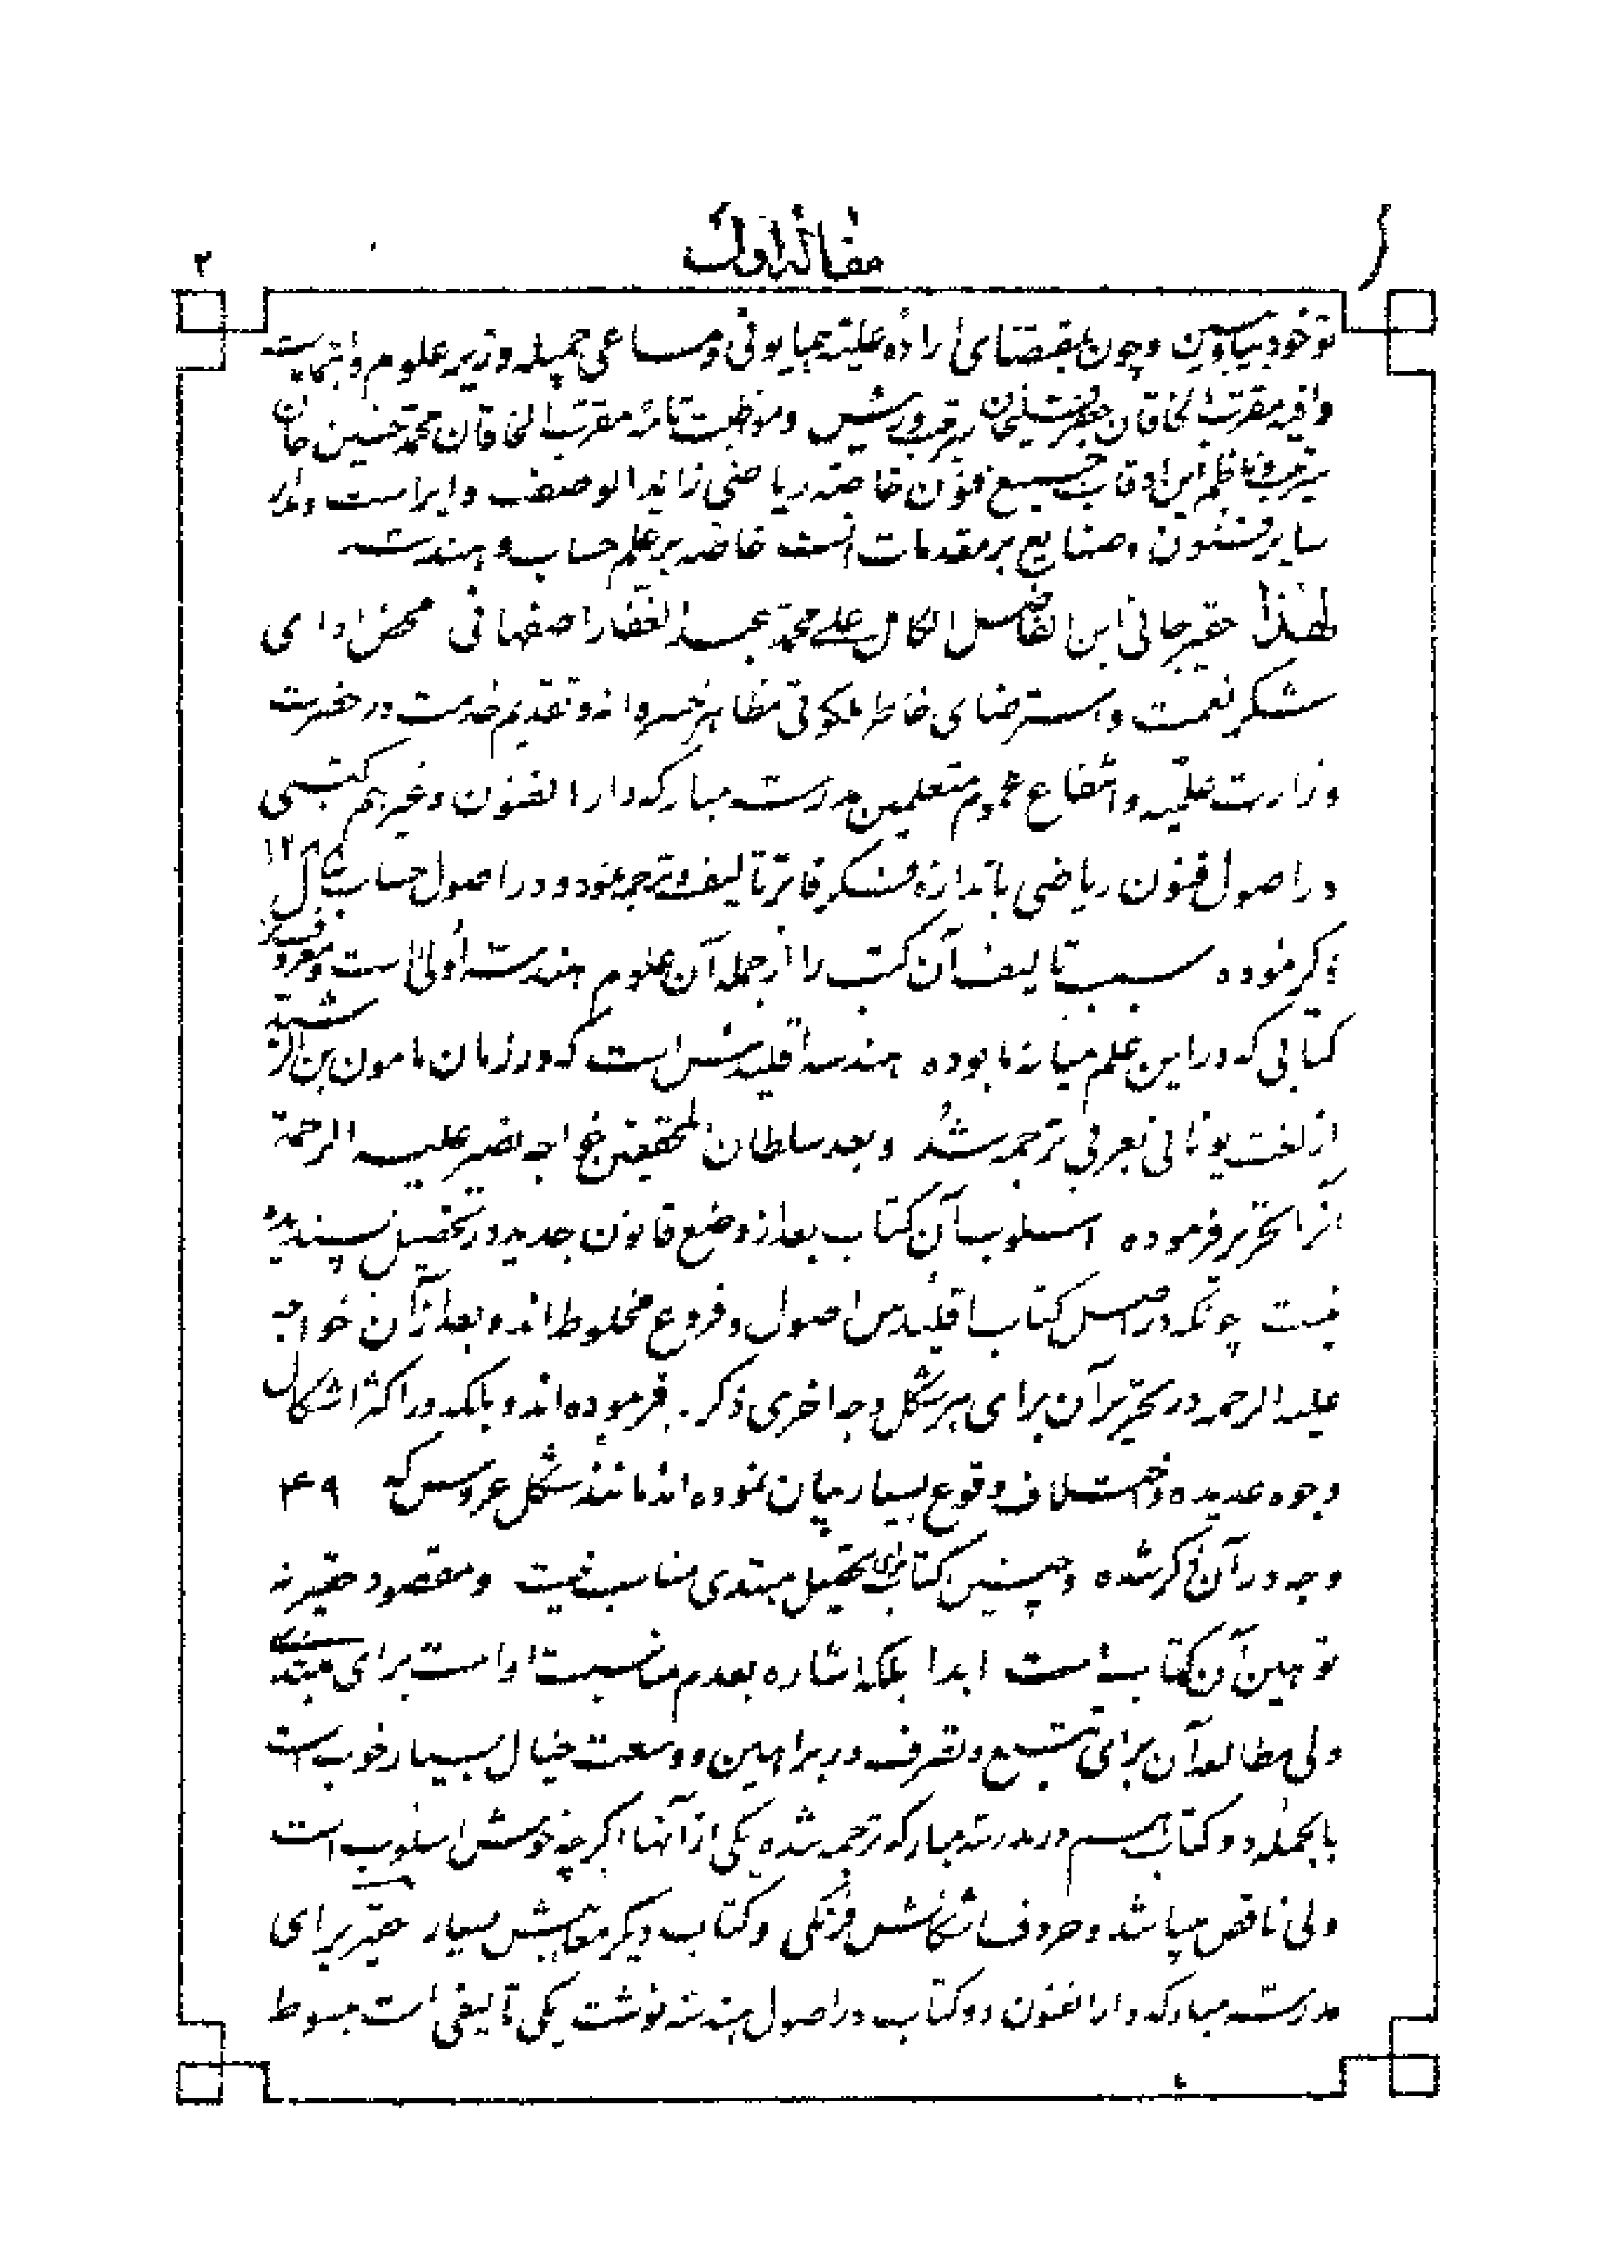 مقاله اول
۲
تو خود بیاموزین و چون بمقتضای ارادهٔ علیّه همایونی و مساعی جمیله وزیر علوم و اهتمامات
وافیه مقرب الخاقان جعفرقلیخان و مواظبت تامّه مقرب الخاقان محمد حسین خان
این اوقات جمیع فنون خاصّه ریاضی زاید الوصف دایر است و مدار
سایر فنون و صنایع بر مقدمات است خاصّه بر علم حساب و هندسه
لهذا حقیر جانی ابن الفاضل الکامل علی محمد عبد الغفار اصفهانی محض ادای
شکر نعمت و استرضای خاطر ملکوتی مظاهر خسروانه و تقدیم خدمت در حضرت
وزارت علیّه و انتفاع عموم متعلمین مدرسه مبارکه دار الفنون و غیرهم کتبی
در اصول فنون ریاضی باندازه فکر فاتر تالیف و ترجمه نمود و در اصول حساب
ذکر نموده سبب تالیف آن کتب را از جمله آن علوم هندسه اولی است و معروفترین
کتابی که در این علم میانه ما بوده هندسه اقلیدس است که در زمان مامون بن الرشید
از لغت یونانی بعربی ترجمه شد و بعد سلطان المحققین خواجه نصیر علیه الرحمة
آنرا تحریر فرموده اسلوب آن کتاب بعد از وضع قانون جدید در تحصیل پسندیده
نیست چونکه در اصل کتاب اقلیدس اصول و فروع مخلوط اند و بعد از آن خواجه
علیه الرحمه در تحریر آن برای هر شکل وجه اخری ذکر فرموده اند و بلکه در اکثر اشکال
وجوه عدیده و اختلاف وقوع بسیار بیان نموده اند مانند شکل عروس که ۴۹
وجه در آن ذکر شده و چنین کتاب برای تحصیل مبتدی مناسب نیست و مقصود حقیر نه
توهین آن کتاب است ابدا بلکه اشاره بعدم مناسبت او است برای مبتدی
ولی مطالعه آن برای تتبع و تصرف در براهین و وسعت خیال بسیار خوب است
بالجمله دو کتاب هم در مدرسه مبارکه ترجمه شده یکی از آنها اگرچه خوش اسلوب است
ولی ناقص میباشد و حروف اشکالش فرنگی و کتاب دیگر معایبش بسیار حقیر برای
مدرسه مبارکه دار الفنون دو کتاب در اصول هندسه نوشت یکی تالیفی است مبسوط